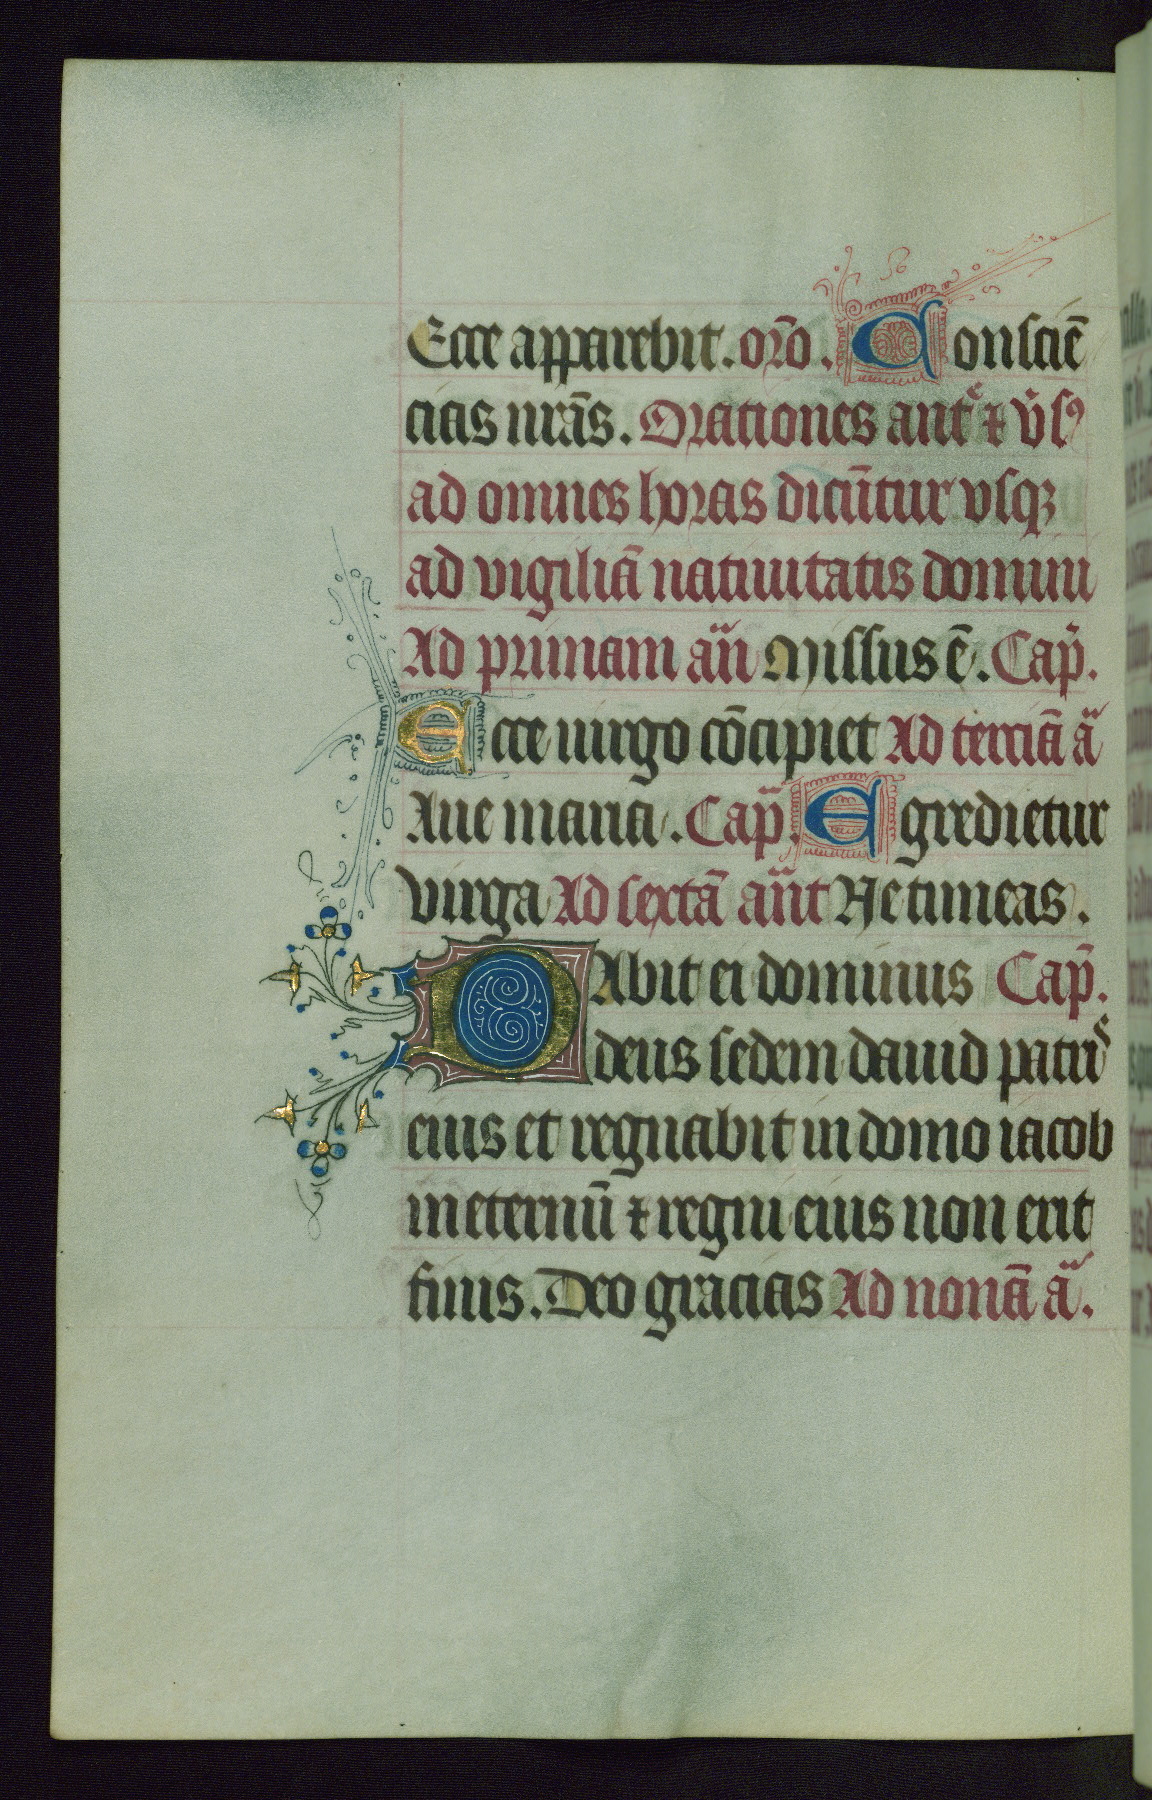 Ecce apparebit. or̃o. Consciẽ
cias nr̃as. Orationes ant̾ ⁊ v̾sꝰ
ad omnes horas dicũtur vsqꝫ
ad vigiliã natiuitatis domini
Ad primam añ Missus ẽ. Cap̃.
Ecce uirgo cõcipiet Ad terciã aᷓ
Aue maria. Cap̃. Egredietur
virga Ad sextã añt Ne timeas.
DAbit ei dominus Cap̃.
deus sedem dauid patrˢ
eius et regnabit in domo iacob
in eternũ ⁊ regni eius non erit
finis. Deo gracias Ad nonã aᷓ.